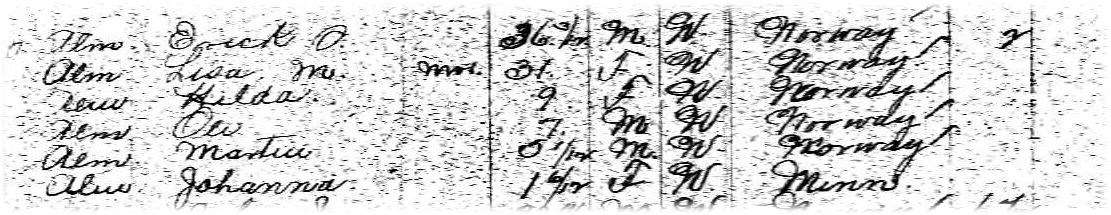 Alm Erick O. 36 2/12 M. W Norway 2
Alm Lisa M. Mrs. 31. F W Norway
Alm Hilda 9 F W Norway
Alm Ole 7. M W Norway
Alm Martin 5 1/12 M. W Norway
Alm Johanna 1 6/12 F W Minn